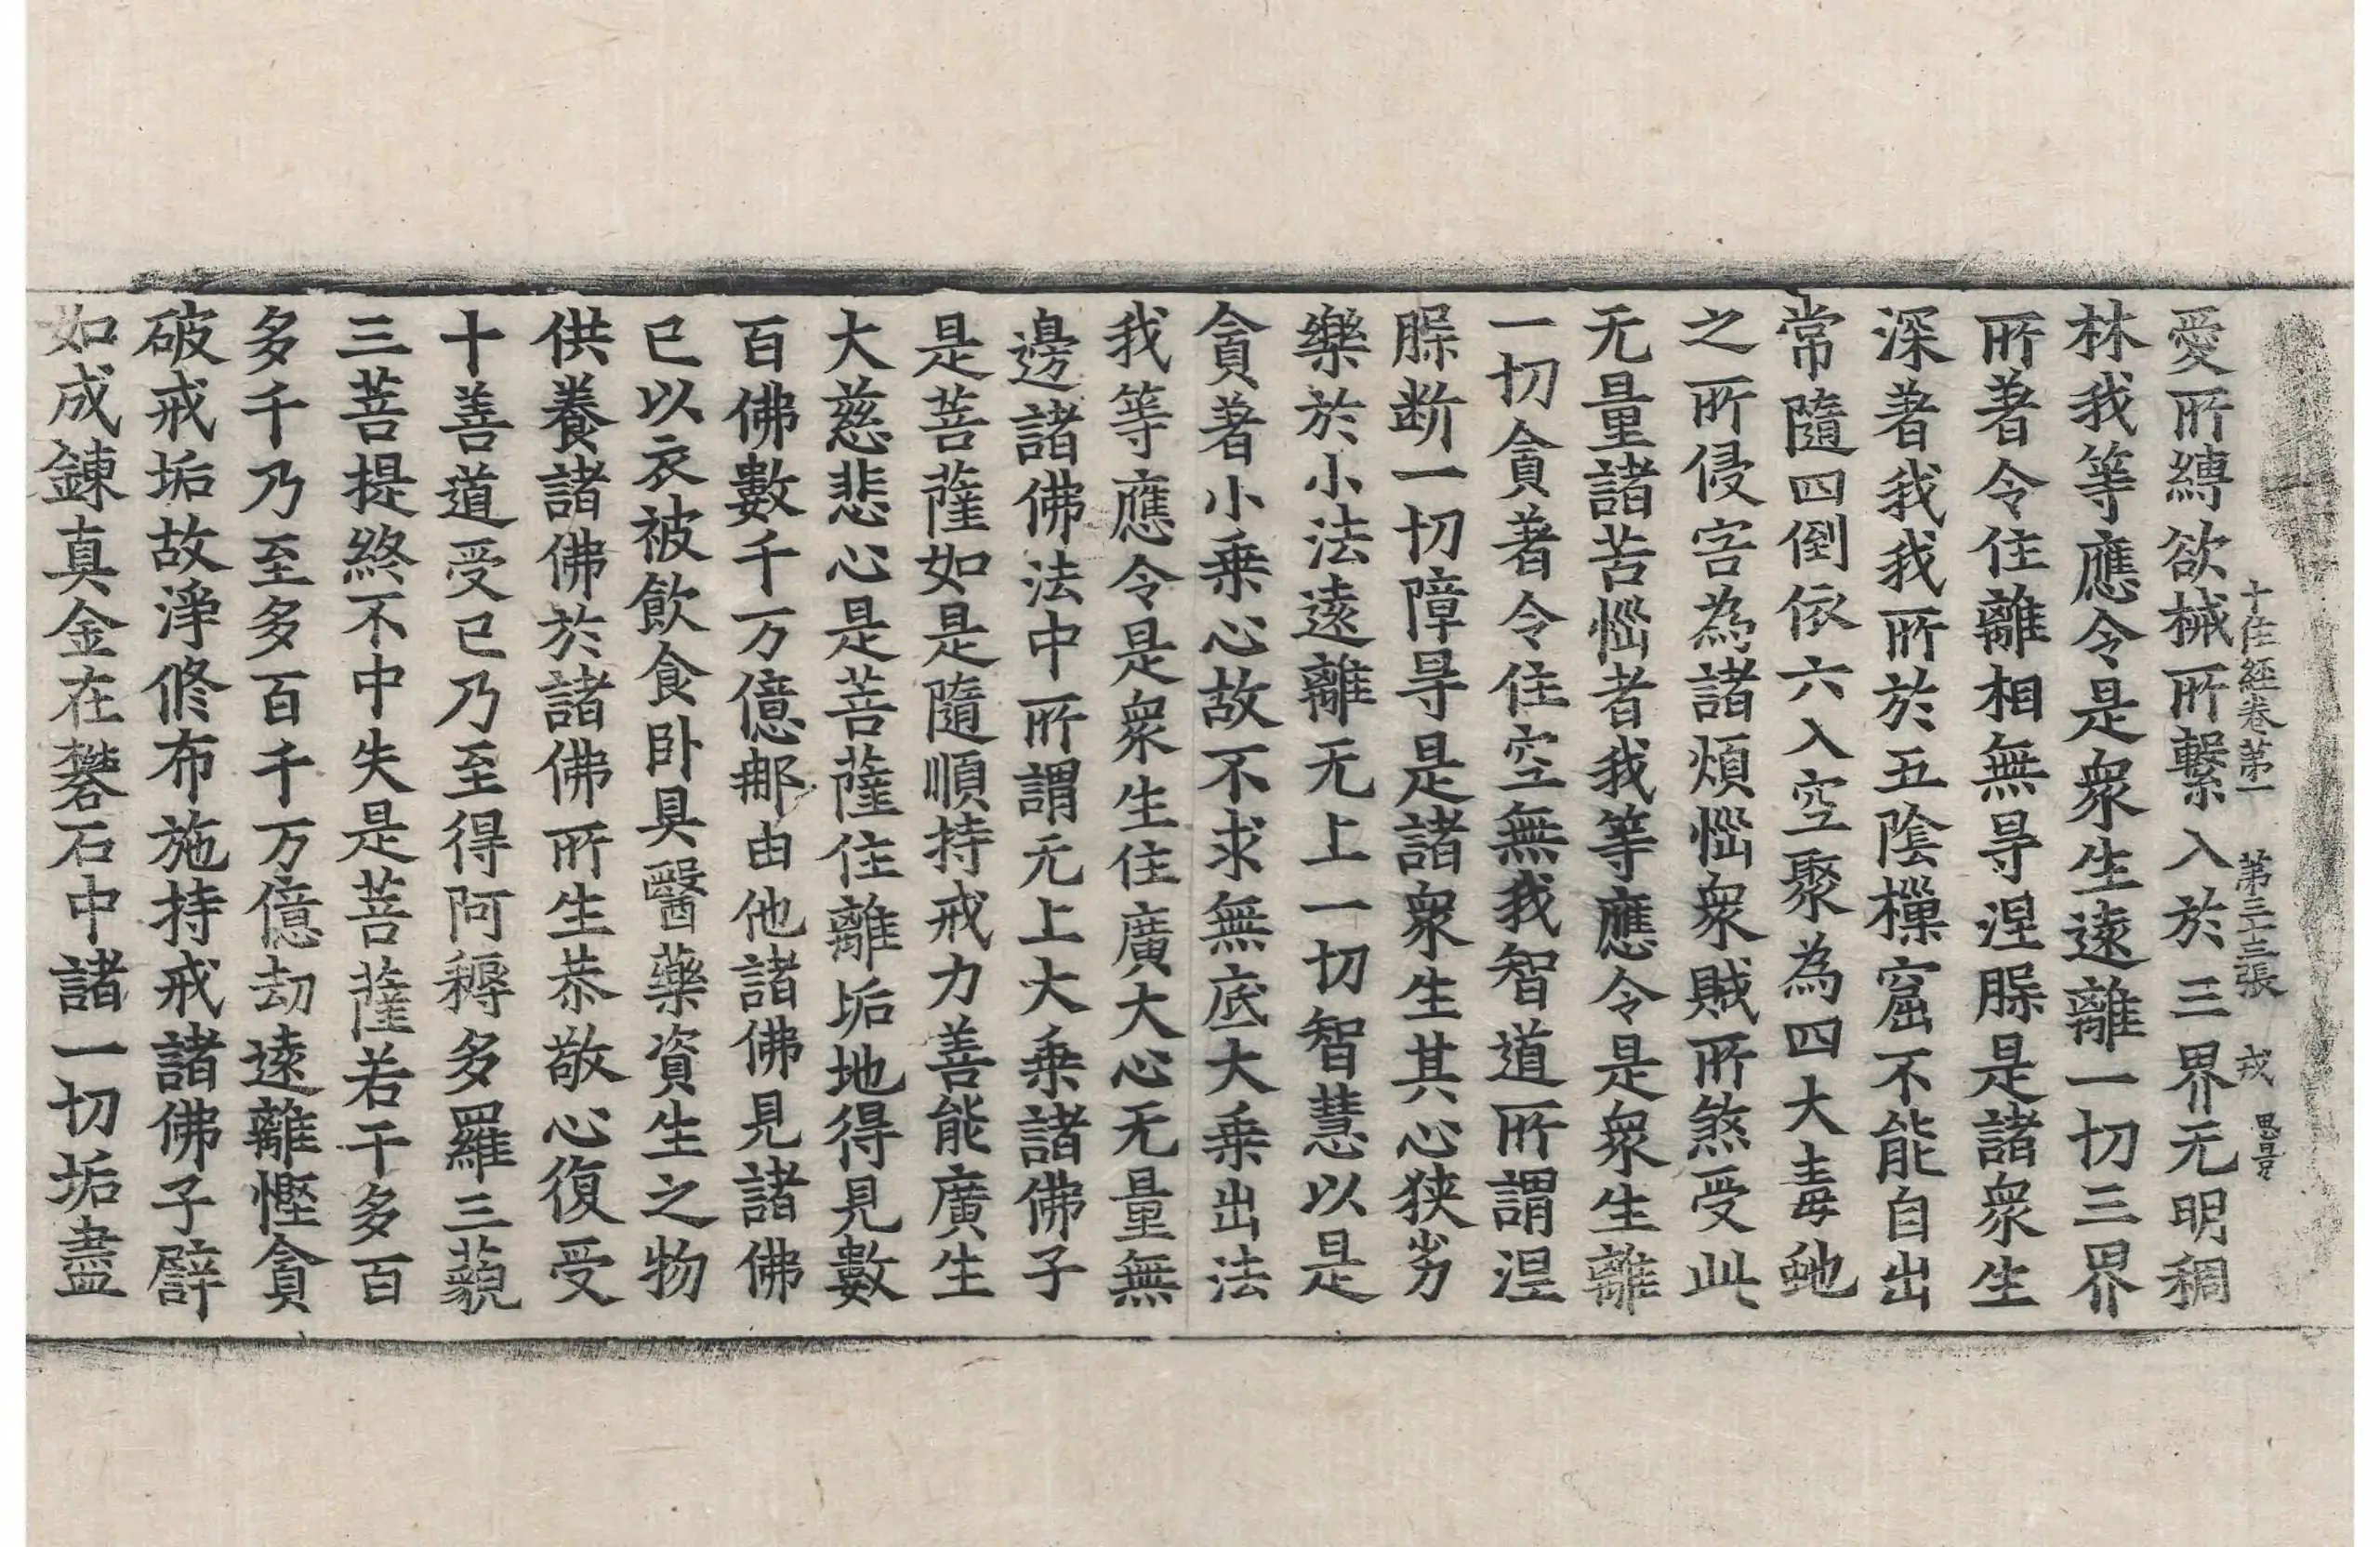 十住經卷第一 第三十三張 戎 思昷
愛所縛欲械所繫入於三界无明稠
林我等應令是衆生遠離一切三界
所著令住離相無㝵涅槃是諸衆生
深著我我所於五陰樔窟不能自出
常隨四倒依六入空聚為四大毒虵
之所侵害為諸煩惱衆賊所煞受此
无量諸苦惱者我等應令是衆生離
一切貪著令住空無我智道所謂涅
槃断一切障㝵是諸衆生其心狹劣
樂於小法遠離无上一切智慧以是
貪著小乗心故不求無底大乗出法
我等應令是衆生住廣大心无量無
邊諸佛法中所謂无上大乗諸佛子
是菩薩如是隨順持戒力善能廣生
大慈悲心是菩薩住離垢地得見數
百佛數千万億那由他諸佛見諸佛
已以衣被飲食卧具醫藥資生之物
供養諸佛於諸佛所生恭敬心復受
十善道受已乃至得阿耨多羅三藐
三菩提終不中失是菩薩若干多百
多千乃至多百千万億劫遠離慳貪
破戒垢故淨修布施持戒諸佛子譬
如成鍊真金在礬石中諸一切垢盡